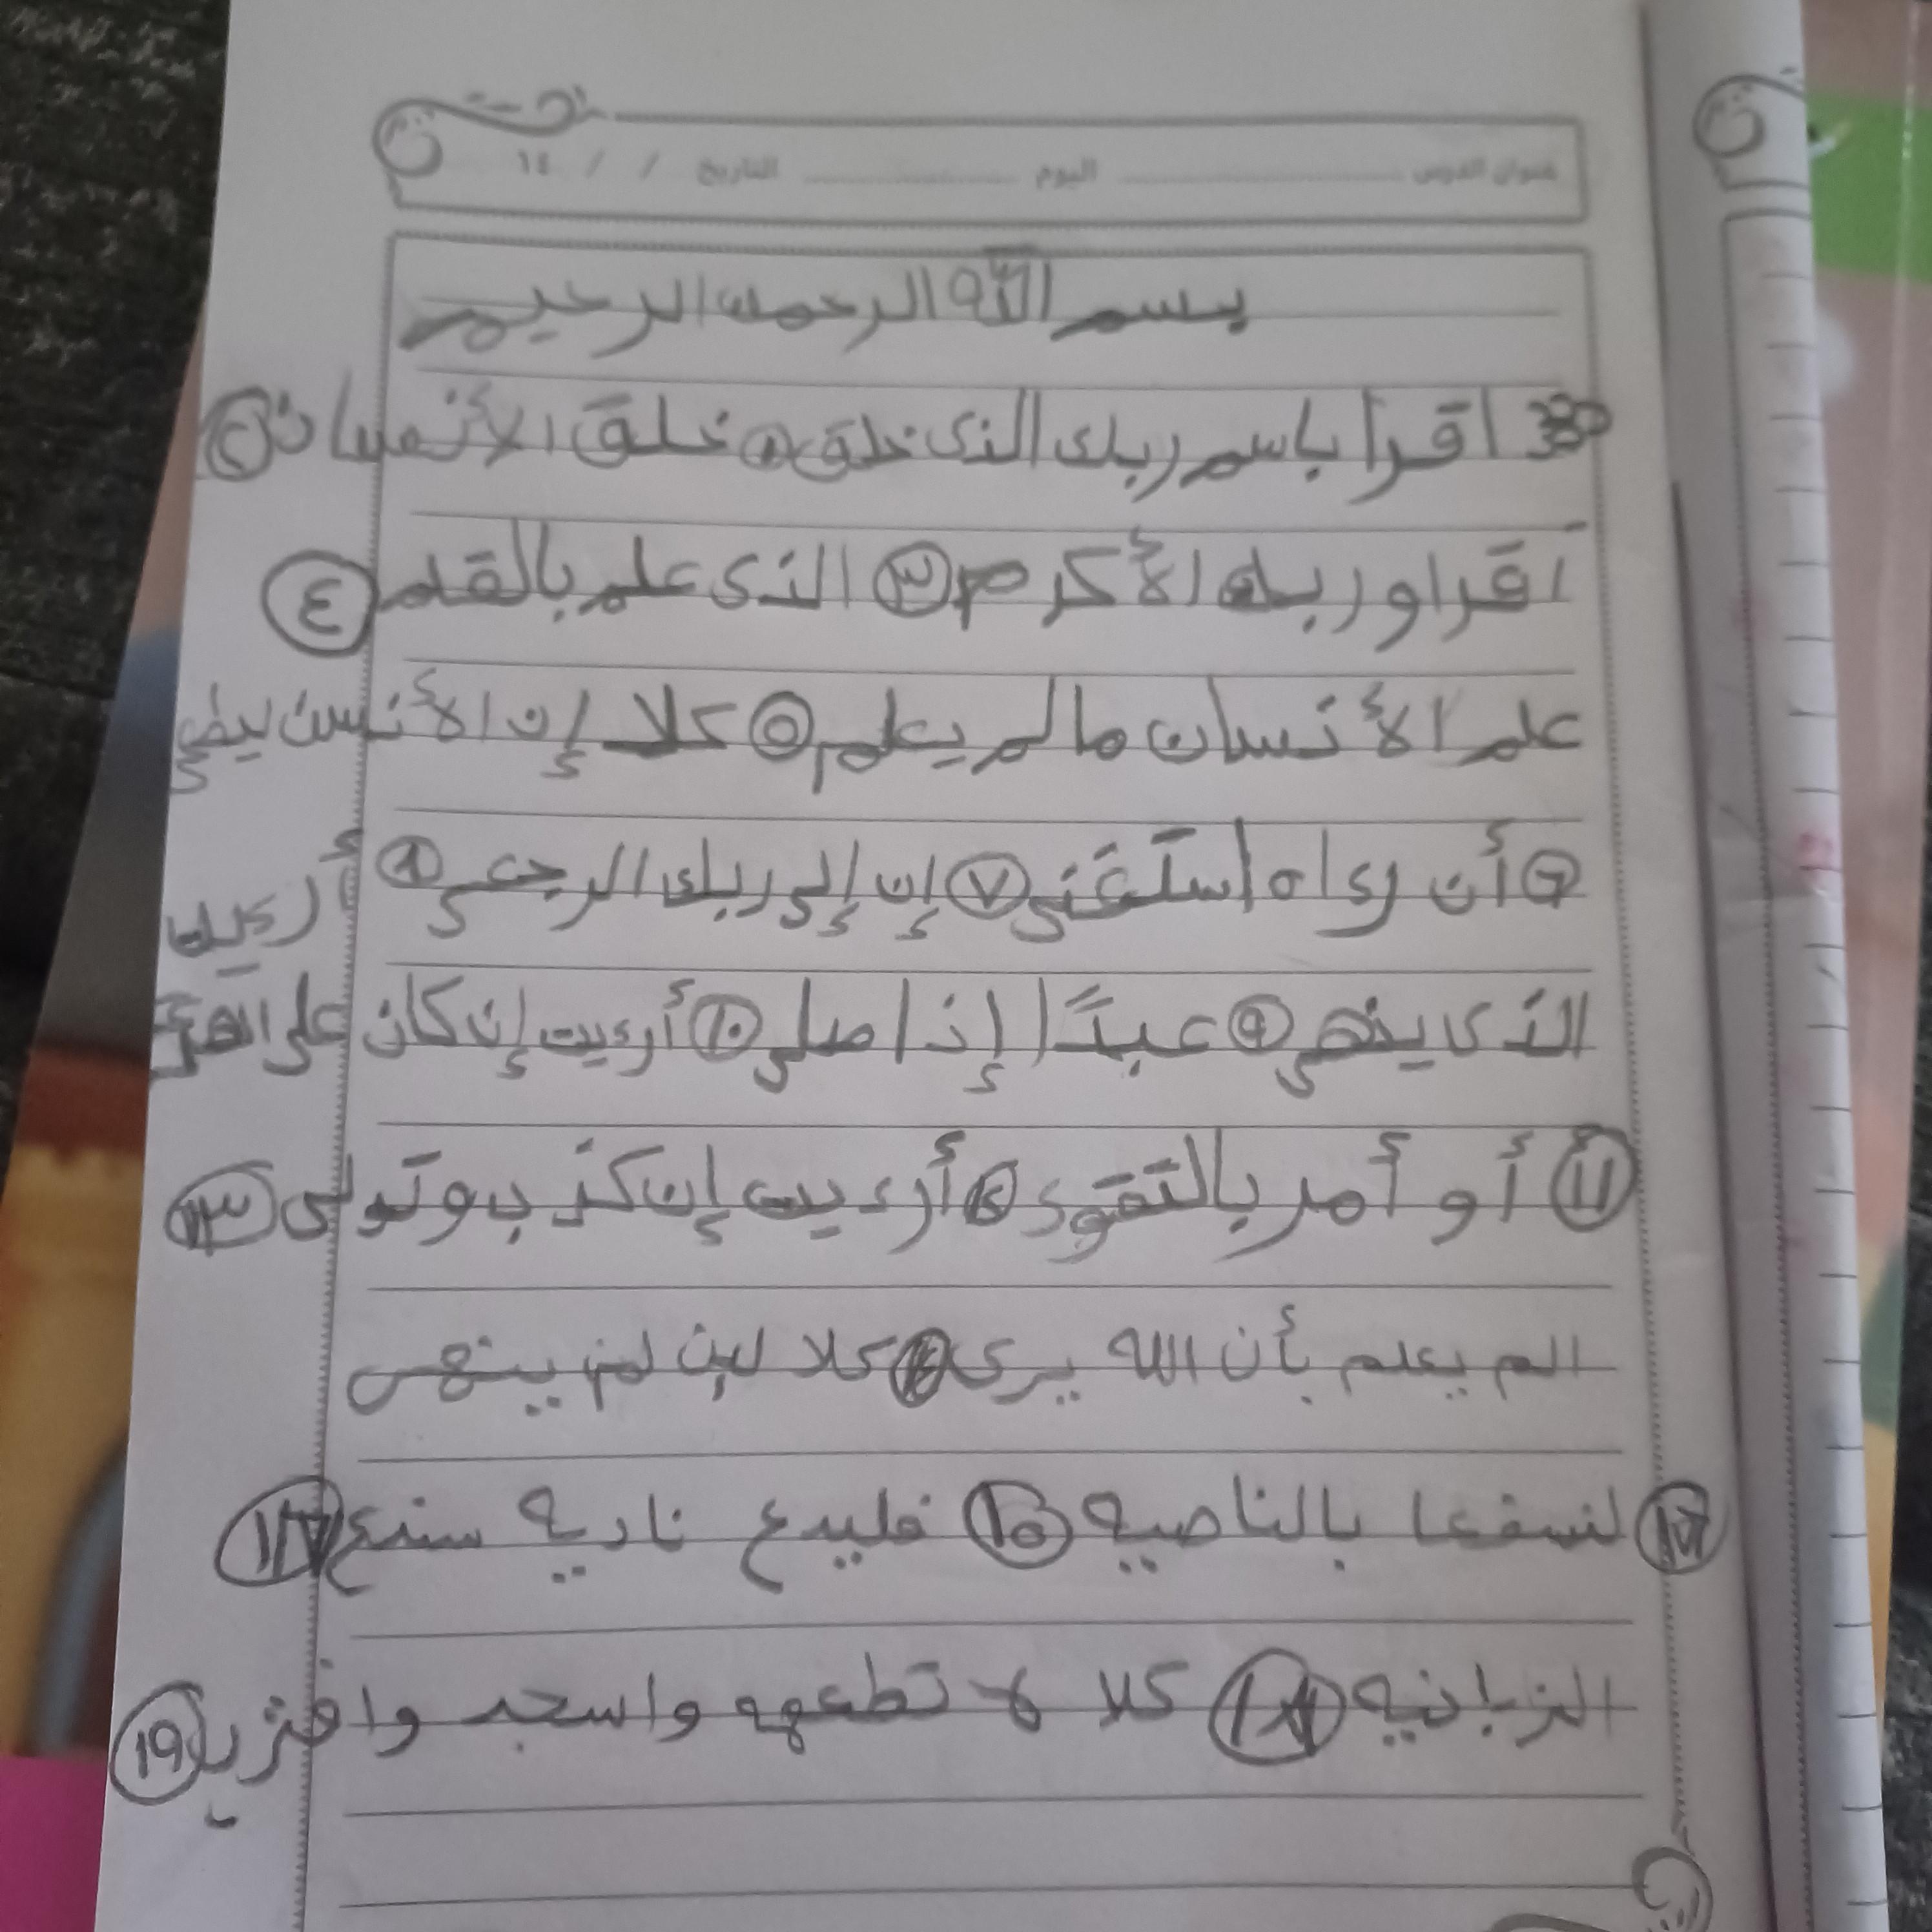 عنوان الدرس اليوم التاريخ / / ١٤
بسم الله الرحمن الرحيم
اقرأ باسم ربك الذى خلق ١ خلق الأنسان ٢
اقرا وربك الأكرم ٣ الذى علم بالقلم ٤
علم الأنسان ما لم يعلم ٥ كلا إن الأنسن ليطغى
٦ أن رءاه استغنى ٧ إن إلى ربك الرجعى ٨ أرءيت
الذى ينهى ٩ عبدًا إذا صلى ١٠ أرءيت إن كان على الهدى
١١ أو أمر بالتقوى ١٢ أرءيت إن كذب وتولى ١٣
الم يعلم بأن الله يرى ١٤ كلا لين لم ينتهى
لنسفعا بالناصيه ١٥ فليدع ناديه سندع ١٧
الزبانيه ١٨ كلا لا تطعهه واسجد واقترب ١٩